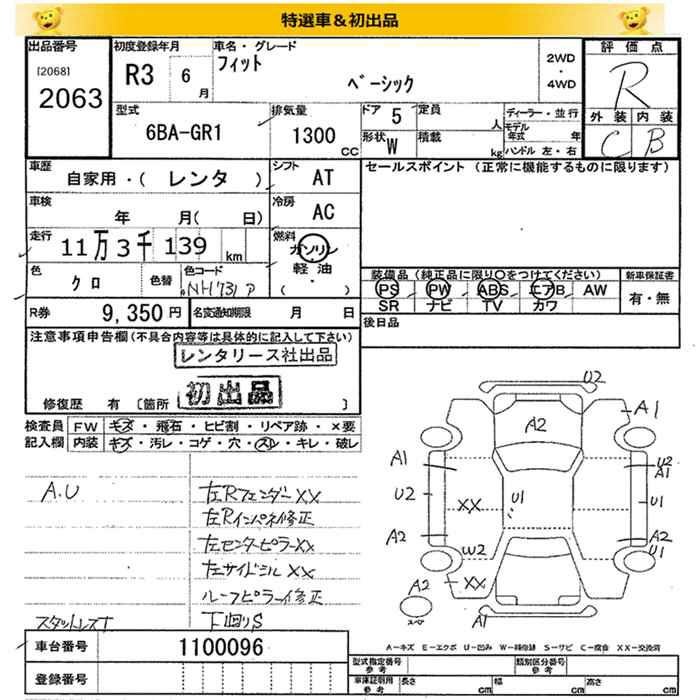 特選車＆初出品
出品番号
[2068]
2063
初度登録年月
R3 6月
車名・グレード
フィット
ベーシック
2WD
・
4WD
評価点
R
外装 内装
C B
型式
6BA-GR1
排気量
1300 CC
ドア 5
形状 W
定員 人
積載 kg
ディーラー・並行
モデル年式 年
ハンドル 左・右
車歴
自家用・( レンタ )
シフト
AT
車検
年 月( 日)
冷房
AC
走行
11万3千139 km
燃料
ガソリン
軽油
・( )
色
クロ
色替
色コード
NH731P
R券
9,350円
名変通知期限 月 日
セールスポイント (正常に機能するものに限ります)
装備品 (純正品に限り○をつけてください)
PS PW ABS エアB AW
SR ナビ TV カワ
新車保証書
有・無
後日品
注意事項申告欄(不具合内容等は具体的に記入して下さい)
レンタリース社出品
初出品
修復歴 有 〔箇所 〕
検査員記入欄
FW キズ・飛石・ヒビ割・リペア跡・×要
内装 キズ・汚レ・コゲ・穴・スレ・キレ・破レ
A.U
左Rフェンダー XX
左Rインパネ修正
左センターピラーXX
左サイドシル XX
ルーフピラー修正
スタットレスT
下廻りS
車台番号
1100096
登録番号
U2
A1
A2
A1
U2
XX
U1
U2
A1
U1
A2
W2
A2
U1
XX
A2
スペア
A1
A－キズ E－エクボ U－凹み W－補修跡 S－サビ C－腐食 XX－交換済
型式指定番号
参考
類別区分番号
参考
車庫証明用
参考
長さ cm
幅 cm
高さ cm